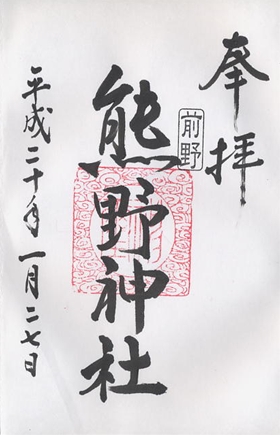 奉拝
前野
熊野神社
平成二十年一月二七日